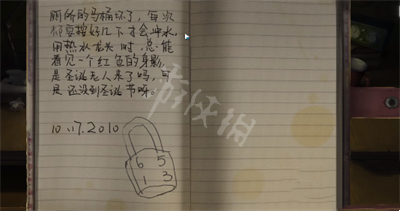 厕所的马桶坏了，每次
都要按好几下才会冲水。
用热水龙头时，总能
看见一个红色的身影，
是圣诞老人来了吗，可
是还没到圣诞节呀。
10.17.2010
6 5
1 3
游侠猎